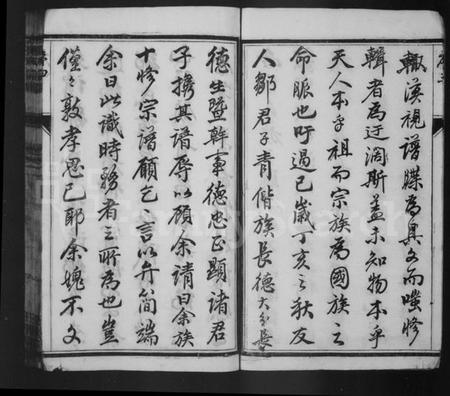 輒漠視譜牒為具文而嗤修
輯者為迂闊斯蓋未知物本乎
天人本乎祖而宗族為國族之
命脈也吁過已歲丁亥之秋友
人鄒君子青偕族長德大分長
德生暨幹事德忠正顯諸君
子攜其譜辱以顧余請曰余族
十修宗譜願乞言以弁簡端
余曰此識時務者之所為也豈
僅僅敦孝思已耶余愧不文